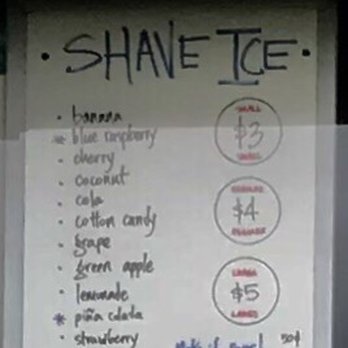 • SHAVE ICE •
• banana
* blue raspberry
• cherry
• coconut
• cola
• cotton candy
• grape
• green apple
• lemonade
* piña colada
• strawberry
SMALL
$3
SMALL
$4
LARGE
$5
LARGE
50¢